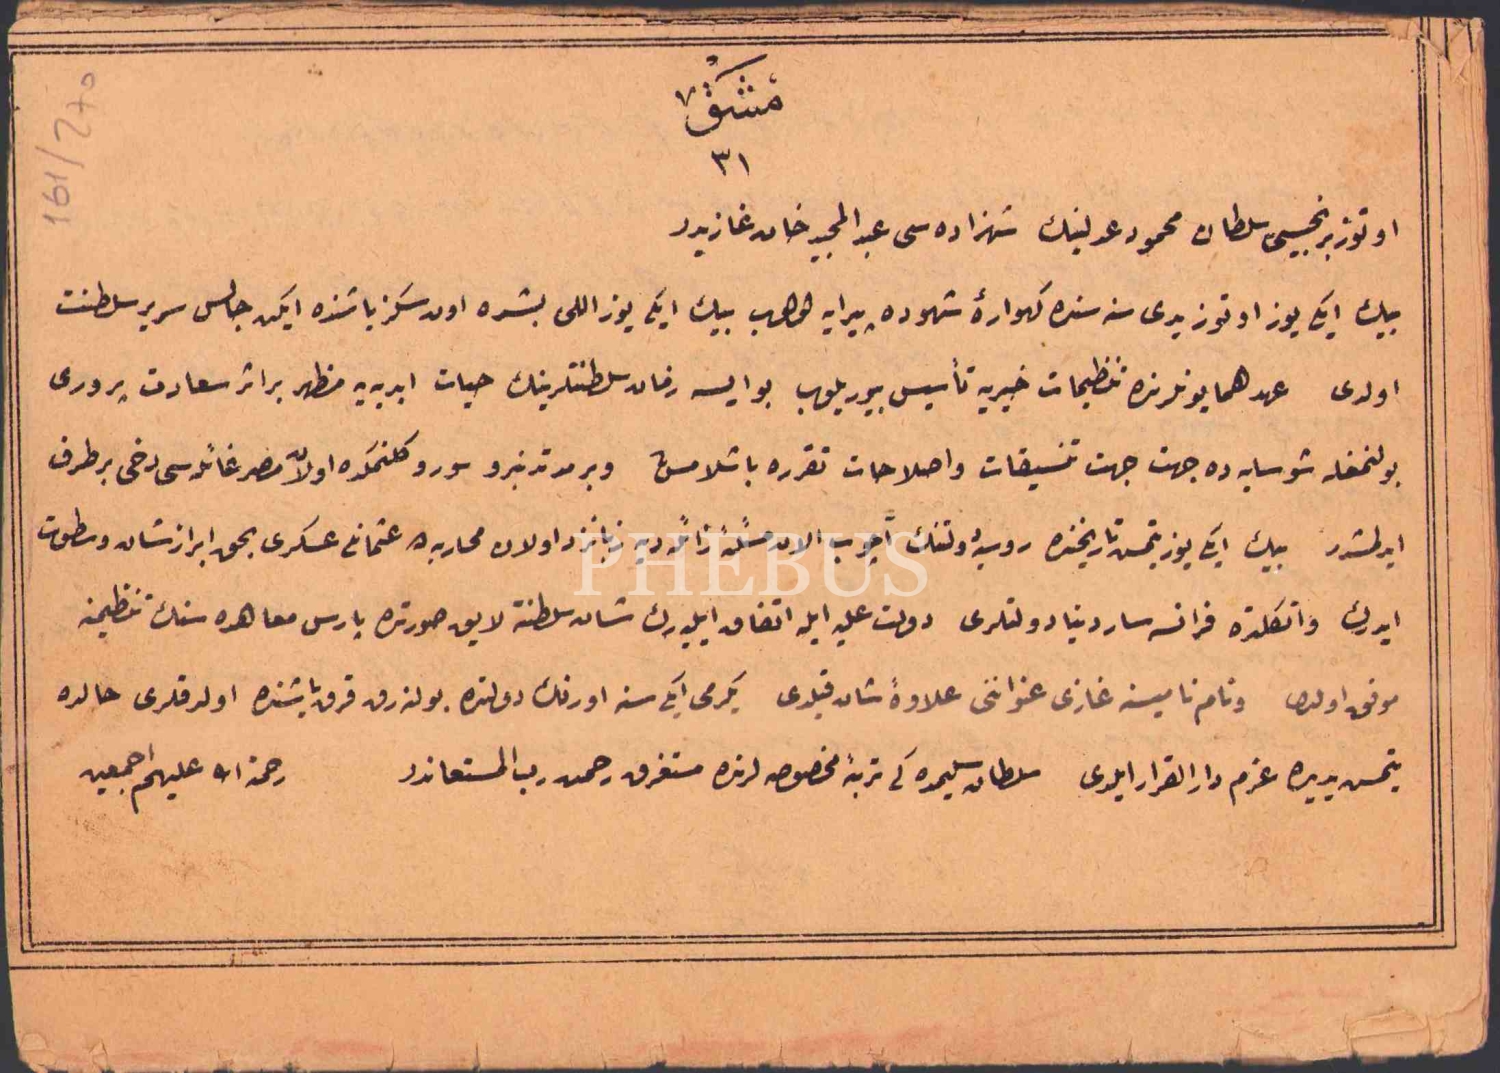 مشق
٣١
اوتوز برنجیسی سلطان محمود عدلینك شهزاده سی عبد المجید خان غازیدر
بیك ایكی یوز اوتوز یدی سنه سنده كهوارهٔ شهوده پیرایه اولوب بیك ایكی یوز اللی بشده اون سكز یاشنده ایكن جالس سریر سلطنت
اولدی عهد همایونلرنده تنظیمات خیریه تأسیس بیوریلوب بو ایسه زمان سلطنتلرینك حیات ابدیه یه مظهر بر اثر سعادت پروری
بولنمغله شو سایه ده جهت جهت تنسیقات و اصلاحات تقرره باشلامش و بر مدتدنبرو سورو كلنمكده اولان مصر غائله سی دخی بر طرف
ایدلمشدر بیك ایكی یوز یتمش تاریخنده روسیه دولتنك آچوب اولان محاربه ده عثمانلی عسكری بحق ابراز شان و سطوت
ایدرك و انكلتره فرانسه ساردنیا دولتلری دولت علیه ایله اتفاق ایلیه رك شان سلطنته لایق صورتده پارس معاهده سنك تنظیمنه
موفق اولدی و نام نامیسنه غازی عنواننی علاوهٔ شان قیلدی یكرمی ایكی سنه اورنك دولتده بولنه رق قرق یاشنده اولدقلری حالده
یتمش یدیده عزم دار القرار ایلدی سلطان سلیمده كی تربهٔ مخصوصه لرنده مستغرق رحمت رب المستعاندر رحمة الله علیهم اجمعین
161/270
PHEBUS